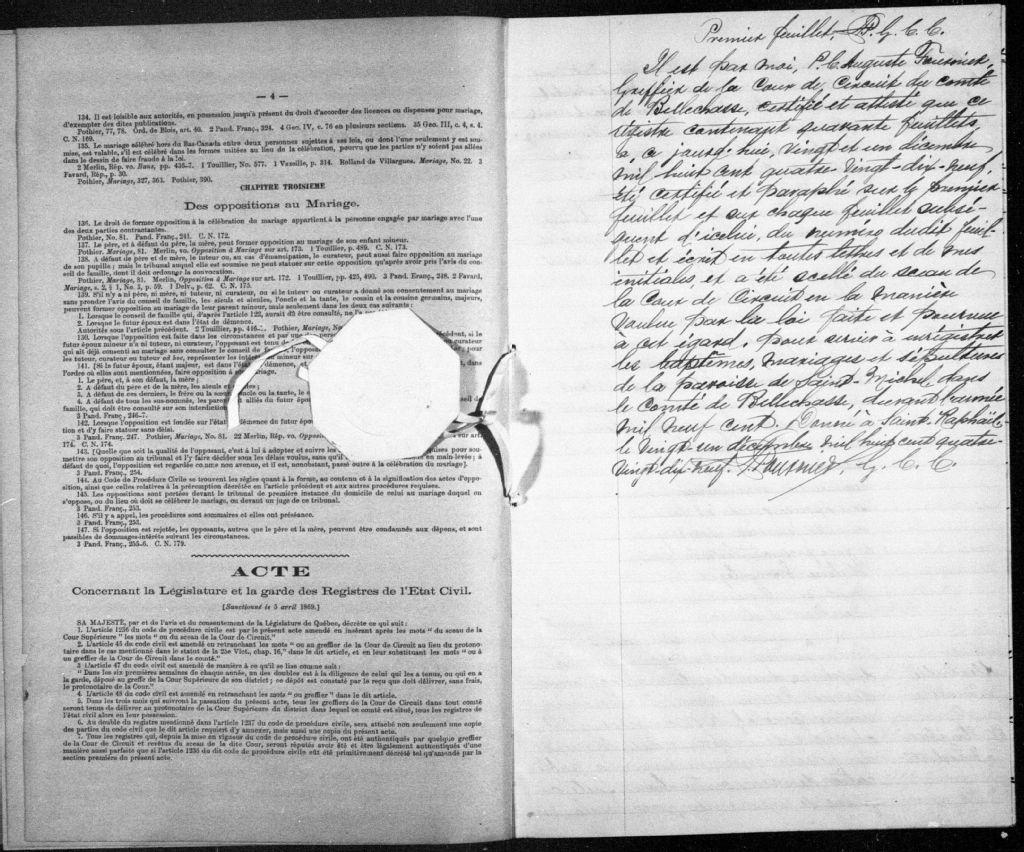 — 4 —
134. Il est loisible aux autorités, en possession jusqu'à présent du droit d'accorder des licences ou dispenses pour mariage,
d'exempter des dites publications.
Pothier, 77, 78. Ord. de Blois, art. 40. 2 Pand. Franç., 324. 4 Geo. IV, c. 76 en plusieurs sections. 35 Geo. III, c. 4, s. 4.
C. N. 169.
135. Le mariage célébré hors du Bas-Canada entre deux personnes sujettes à ses lois, ou dont l'une seulement y est sou-
mise, est valable, s'il est célébré dans les formes usitées au lieu de la célébration, pourvu que les parties n'y soient pas allées
dans le dessin de faire fraude à la loi.
2 Merlin, Rép. vo. Bans, pp. 436-7. 1 Touillier, No. 577. 1 Vazeille, p. 314. Rolland de Villargues. Mariage, No. 22. 3
Favard, Rép., p. 30.
Pothier, Mariage, 327, 361. Pothier, 390.
CHAPITRE TROISIEME
Des oppositions au Mariage.
136. Le droit de former opposition à la célébration du mariage appartient à la personne engagée par mariage avec l'une
des deux parties contractantes.
Pothier, No. 81. Pand. Franç., 241. C. N. 172.
137. Le père, et à défaut du père, la mère, peut former opposition au mariage de son enfant mineur.
Pothier, Mariage, 81. Merlin, vo. Opposition à Mariage sur art. 173. 1 Touillier, p. 489. C. N. 173.
138. A défaut de père et de mère, le tuteur ou, au cas d'émancipation, le curateur, peut aussi faire opposition au mariage
de son pupille; mais le tribunal auquel elle est soumise ne peut statuer sur cette opposition qu'après avoir pris l'avis du con-
seil de famille, dont il doit ordonner la convocation.
Pothier, Mariage, 81. Merlin, Opposition à Mariage sur art. 172. 1 Touillier, pp. 425, 490. 3 Pand. Franç., 248. 2 Favard,
Mariage, s. 2, § 1, No. 3, p. 59. 1 Delv., p. 62. C. N. 175.
139. S'il n'y a ni père, ni mère, ni tuteur, ni curateur, ou si le tuteur ou curateur a donné son consentement au mariage
sans prendre l'avis du conseil de famille, les aïeuls et aïeules, l'oncle et la tante, le cousin et la cousine germains, majeurs,
peuvent former opposition au mariage de leur parent mineur, mais seulement dans les deux cas suivants:
1. Lorsque le conseil de famille qui, d'après l'article 122, aurait dû être consulté, ne l'a
2. Lorsque le futur époux est dans l'état de démence.
Autorités sous l'article précédent. 2 Touillier, pp. 416 Pothier, Mariage, No
140. Lorsque l'opposition est faite dans les circonstances et par une précédent, si le
futur époux mineur n'a ni tuteur, ni curateur, l'opposant est tenu de curateur
qui ait déjà consenti au mariage sans consulter le conseil de famille, l'oppos pour
les tuteur, curateur ou tuteur ad hoc, représenter les intérêts mineur sur
141. [Si le futur époux, étant majeur, est dans l'état démence, dans
l'ordre où elles sont mentionnées, faire opposition à mariage.
1. Le père, et, à son défaut, la mère;
2. A défaut du père et de la mère, les aïeuls et aïeules;
3. A défaut de ces derniers, le frère ou la sœur, l'oncle ou la tante, le
4. A défaut de tous les sus-nommés, les parents alliés du futur époux seil de
famille, qui doit être consulté sur son interdiction
3 Pand. Franç., 246-7.
142. Lorsque l'opposition est fondée sur l'état démence du futur époux
tion et d'y faire statuer sans délai.
3 Pand. Franç. 247. Pothier, Mariage, No. 81. 22 Merlin, Rép. vo. Oppos sur art.
174. C. N. 174.
143. [Quelle que soit la qualité de l'opposant, c'est à lui à adopter et suivre les requises pour sou-
mettre son opposition au tribunal et l'y faire décider sous les délais voulus, sans qu'il en main-levée; à
défaut de quoi, l'opposition est regardée comme non avenue, et il est, nonobstant, passé outre à la célébration du mariage].
3 Pand. Franç., 254.
144. Au Code de Procédure Civile se trouvent les règles quant à la forme, au contenu et à la signification des actes d'oppo-
sition, ainsi que celles relatives à la péremption décrétée en l'article précédent et aux autres procédures requises.
145. Les oppositions sont portées devant le tribunal de première instance du domicile de celui au mariage duquel on
s'oppose, ou du lieu où doit se célébrer le mariage, ou devant un juge de ce tribunal.
3 Pand. Franç., 253.
146. S'il y a appel, les procédures sont sommaires et elles ont préséance.
3 Pand. Franç., 253.
147. Si l'opposition est rejetée, les opposants, autres que le père et la mère, peuvent être condamnés aux dépens, et sont
passibles de dommages-intérêts suivant les circonstances.
3 Pand. Franç., 255-6. C. N. 179.
ACTE
Concernant la Législature et la garde des Registres de l'Etat Civil.
[Sanctionné le 5 avril 1869.]
SA MAJESTÉ, par et de l'avis et du consentement de la Législature de Québec, décrète ce qui suit:
1. L'article 1236 du code de procédure civile est par le présent acte amendé en insérant après les mots "du sceau de la
Cour Supérieure" les mots "ou du sceau de la Cour de Circuit."
2. L'article 45 du code civil est amendé en retranchant les mots "ou au greffier de la Cour de Circuit au lieu du protono-
taire dans le cas mentionné dans le statut de la 25e Vict., chap. 16," dans le dit article, et en leur substituant les mots "ou à
un greffier de la Cour de Circuit dans le comté."
3 L'article 47 du code civil est amendé de manière à ce qu'il se lise comme suit:
"Dans les six premières semaines de chaque année, un des doubles est à la diligence de celui qui les a tenus, ou qui en a
la garde, déposé au greffe de la Cour Supérieure de son district; ce dépôt est constaté par le reçu que doit délivrer, sans frais,
le protonotaire de la Cour."
4. L'article 48 du code civil est amendé en retranchant les mots "ou greffier" dans le dit article.
5. Dans les trois mois qui suivront la passation du présent acte, tous les greffiers de la Cour de Circuit dans tout comté
seront tenus de délivrer au protonotaire de la Cour Supérieure du district dans lequel en comté est situé, tous les registres de
l'état civil alors en leur possession.
6. Au double du registre mentionné dans l'article 1237 du code de procédure civile, sera attaché non seulement une copie
des parties du code civil que le dit article requiert d'y annexer, mais aussi une copie du présent acte.
7. Tous les registres qui, depuis la mise en vigueur du code de procédure civile, ont été authentiqués par quelque greffier
de la Cour de Circuit et revêtus du sceau de la dite Cour, seront réputés avoir été et être légalement authentiqués d'une
manière aussi parfaite que si l'article 1236 du dit code de procédure civile eût été primitivement décrété tel qu'amendé par la
section première du présent acte.
Premier feuillet. P. G. C. C.
Il est par moi, P. C. Auguste Fournier,
Greffier de la Cour de Circuit du comté
de Bellechasse, certifié et attesté que ce
régistre contenant quarante feuillets
a, ce jourd'hui, vingt et un décembre
mil huit cent quatre-vingt-dix-neuf,
été certifié et paraphé sur le premier
feuillet et sur chaque feuillet subsé-
quent d'icelui, du numéro dudit feuil-
let et écrit en toutes lettres et de mes
initiales, et a été scellé du sceau de
la Cour de Circuit en la manière
voulue par la loi faite et pourvue
à cet égard, pour servir à enrégistrer
les baptêmes, mariages et sépultures
de la paroisse de Saint-Michel dans
le Comté de Bellechasse, durant l'année
mil neuf cent. Donné à Saint-Raphaël
le vingt-un décembre mil huit cent quatre-
vingt-dix-neuf. Fournier, G. C. C.